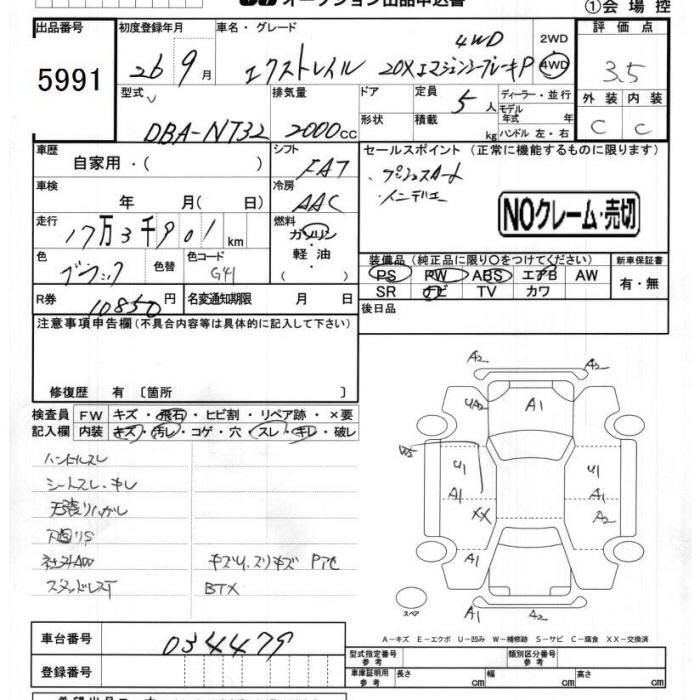 オークション出品申込書
①会場控
出品番号
5991
初度登録年月
26 9月
車名・グレード
エクストレイル 20Xエマジェンシーブレーキ P
4WD
2WD
4WD
評価点
3.5
外装 内装
C C
型式
DBA-NT32
排気量
2000cc
ドア
形状
定員
5人
積載
kg
ディーラー・並行
モデル
年式 年
ハンドル 左・右
車歴
自家用・( )
シフト
FAT
車検
年 月( 日)
冷房
AAC
走行
17万3千901km
燃料
ガソリン
軽油
( )
色
ブラック
色替
色コード
G41
R券
10850円
名変通知期限 月 日
セールスポイント(正常に機能するものに限ります)
・プッシュスタート
・インテリ
NOクレーム・売切
装備品(純正品に限り〇をつけてください)
PS PW ABS エアB AW
SR ナビ TV カワ
新車保証書
有・無
後日品
注意事項申告欄(不具合内容等は具体的に記入して下さい)
修復歴 有〔箇所 〕
検査員
記入欄
FW キズ・飛石・ヒビ割・リペア跡・×要
内装 キズ・汚レ・コゲ・穴・スレ・キレ・破レ
ハンドルスレ
シートスレ・キレ
天張りハガレ
社外AW
キズ小、スリキズ Pアセ
スタッドレスT
BTX
A2
A2
UA2
A1
U1
U1
A1
A1
XX
A2
A1
A1
A1
A2
スペア
A-キズ E-エクボ U-凹み W-補修跡 S-サビ C-腐食 XX-交換済
車台番号
034479
登録番号
型式指定番号
参考
類別区分番号
参考
車庫証明用
参考
長さ cm
幅 cm
高さ cm